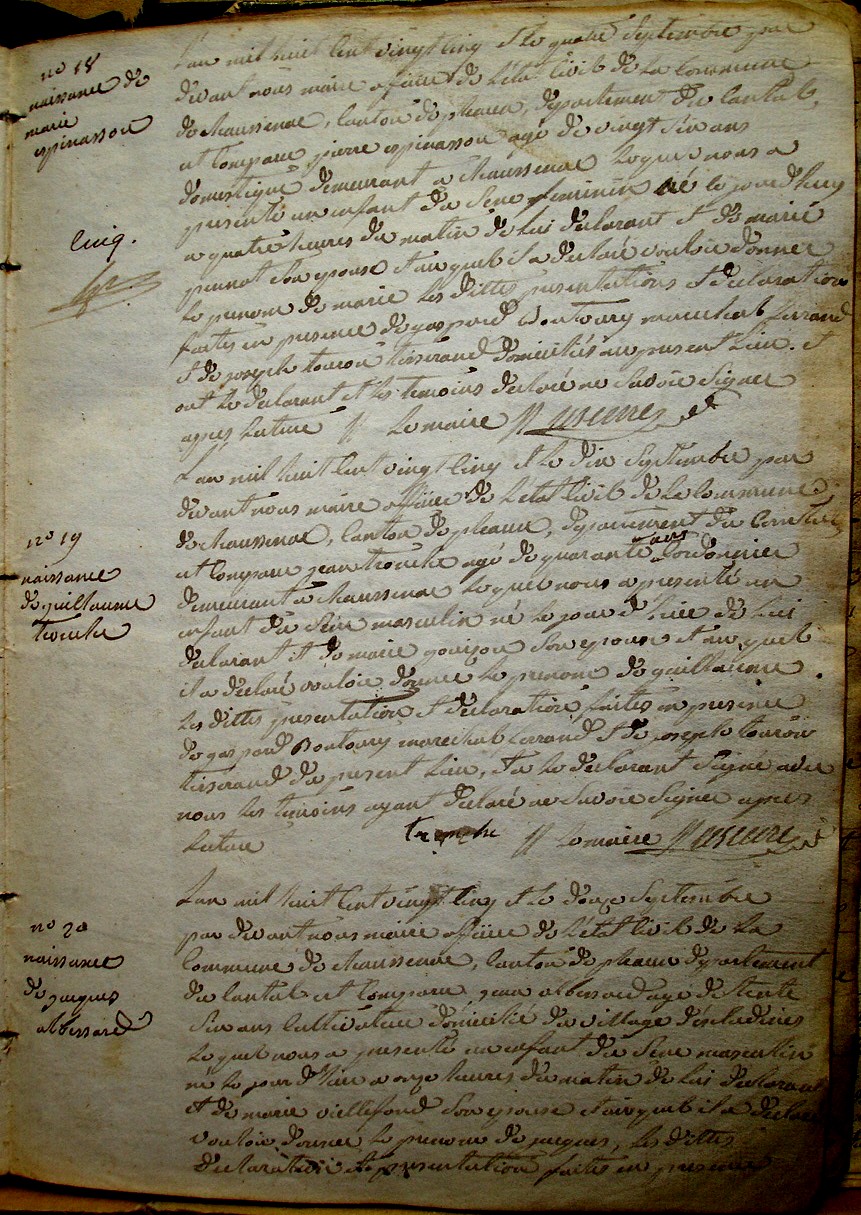 no 18
naissance de
marie
espinassou
cinq.
L'an mil huit cent vingt cinq et le quatre Septembre par
devant nous maire officier de L'etat Civil de La Commune
de chaussenac, Canton de pleaux, departement du Cantal,
est Comparu pierre espinassou agé de vingt Six ans
domestique demeurant a chaussenac Lequel nous a
presenté un enfant du Sexe feminin né le jourd'huy
a quatre heures du matin de Lui declarant et de marie
son epouse et auquel il a declaré vouloir donner
Le prenom de marie Les dittes presentations et declarations
faites en presence de gaspard Boutoury marechal ferrand
et de joseph tisserand domiciliés au present Lieu. et
ont Le declarant et Les temoins declaré ne Savoir Signer
apres Lecture Le maire
no 19
naissance
de guillaume
trouche
L'an mil huit Cent vingt Cinq et Le dix Septembre par
devant nous maire officier de L'etat Civil de La Commune
de chaussenac, Canton de pleaux, departement du Cantal
est Comparu jean trouche agé de quarante ans Cordonnier
demeurant a chaussenac Lequel nous a presenté un
enfant du Sexe masculin né Le jour d'hier de Lui
declarant et de marie Son epouse et auquel
il a declaré vouloir donner Le prenom de guillaume
Les dittes presentation et declaration faites en presence
de gaspard Boutoury marechal ferrand et de joseph
tisserand du present Lieu, et a Le declarant Signé avec
nous Les temoins ayant declaré ne Savoir Signer apres
Lecture trouche Le maire
no 20
naissance
de jacques
albessard
L'an mil huit Cent vingt Cinq et Le douze Septembre
par devant nous maire officier de L'etat Civil de La
Commune de chaussenac, Canton de pleaux departement
du Cantal est Comparu jean albessard agé de trente
Six ans Cultivateur domicilié du village d'escladines
Lequel nous a presenté un enfant du Sexe masculin
né Le jour d'hier a onze heures du matin de Lui declarant
et de marie viellefond Son epouse et auquel il a declaré
vouloir donner Le prenom de jacques, Les dittes
declaration et presentation faites en presence